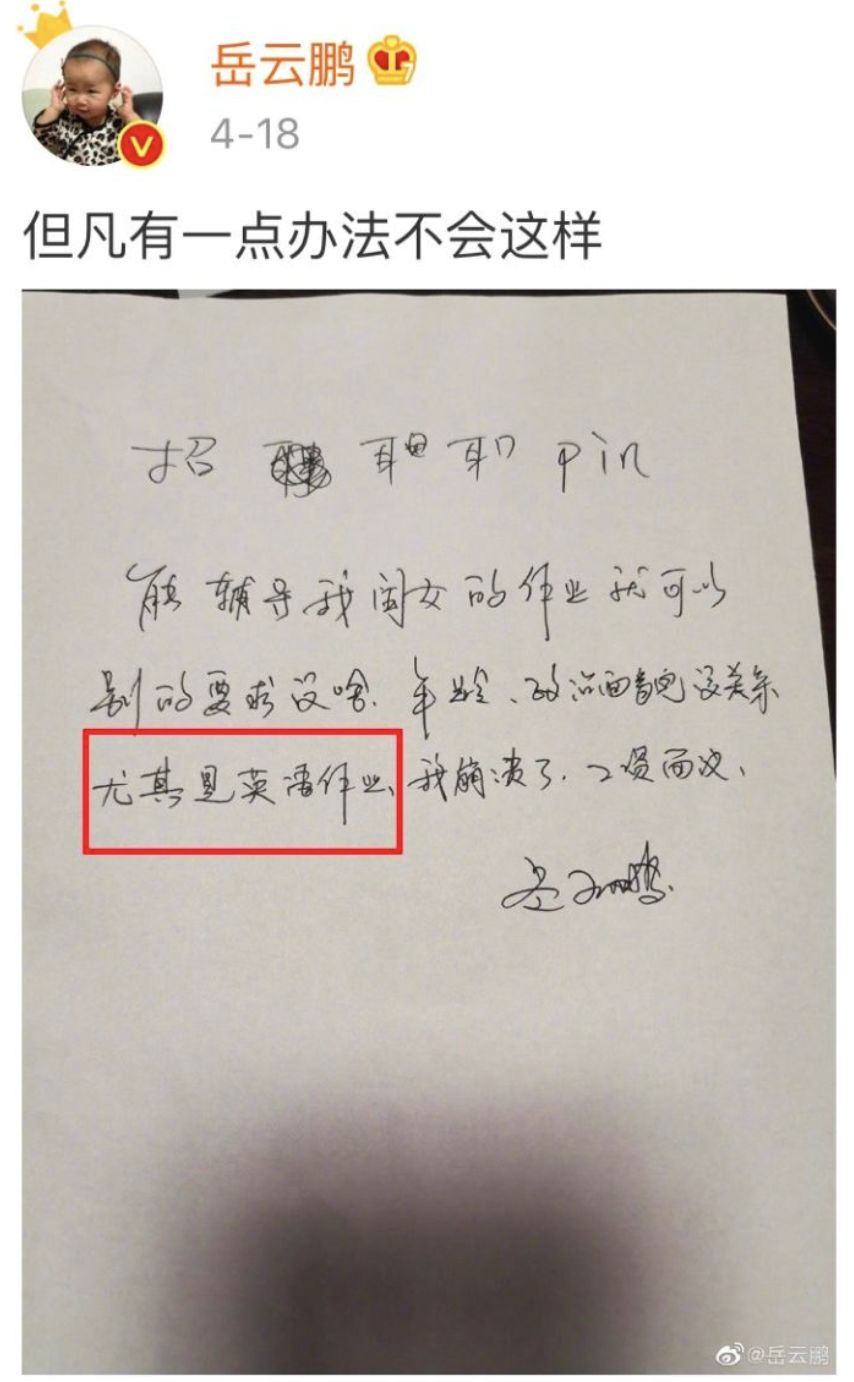 岳云鹏
4-18
但凡有一点办法不会这样
招 pin
能辅导我闺女的作业就可以
别的要求没啥、年龄、政治面貌没关系
尤其是英语作业、我崩溃了、工资面议、
岳云鹏
@岳云鹏